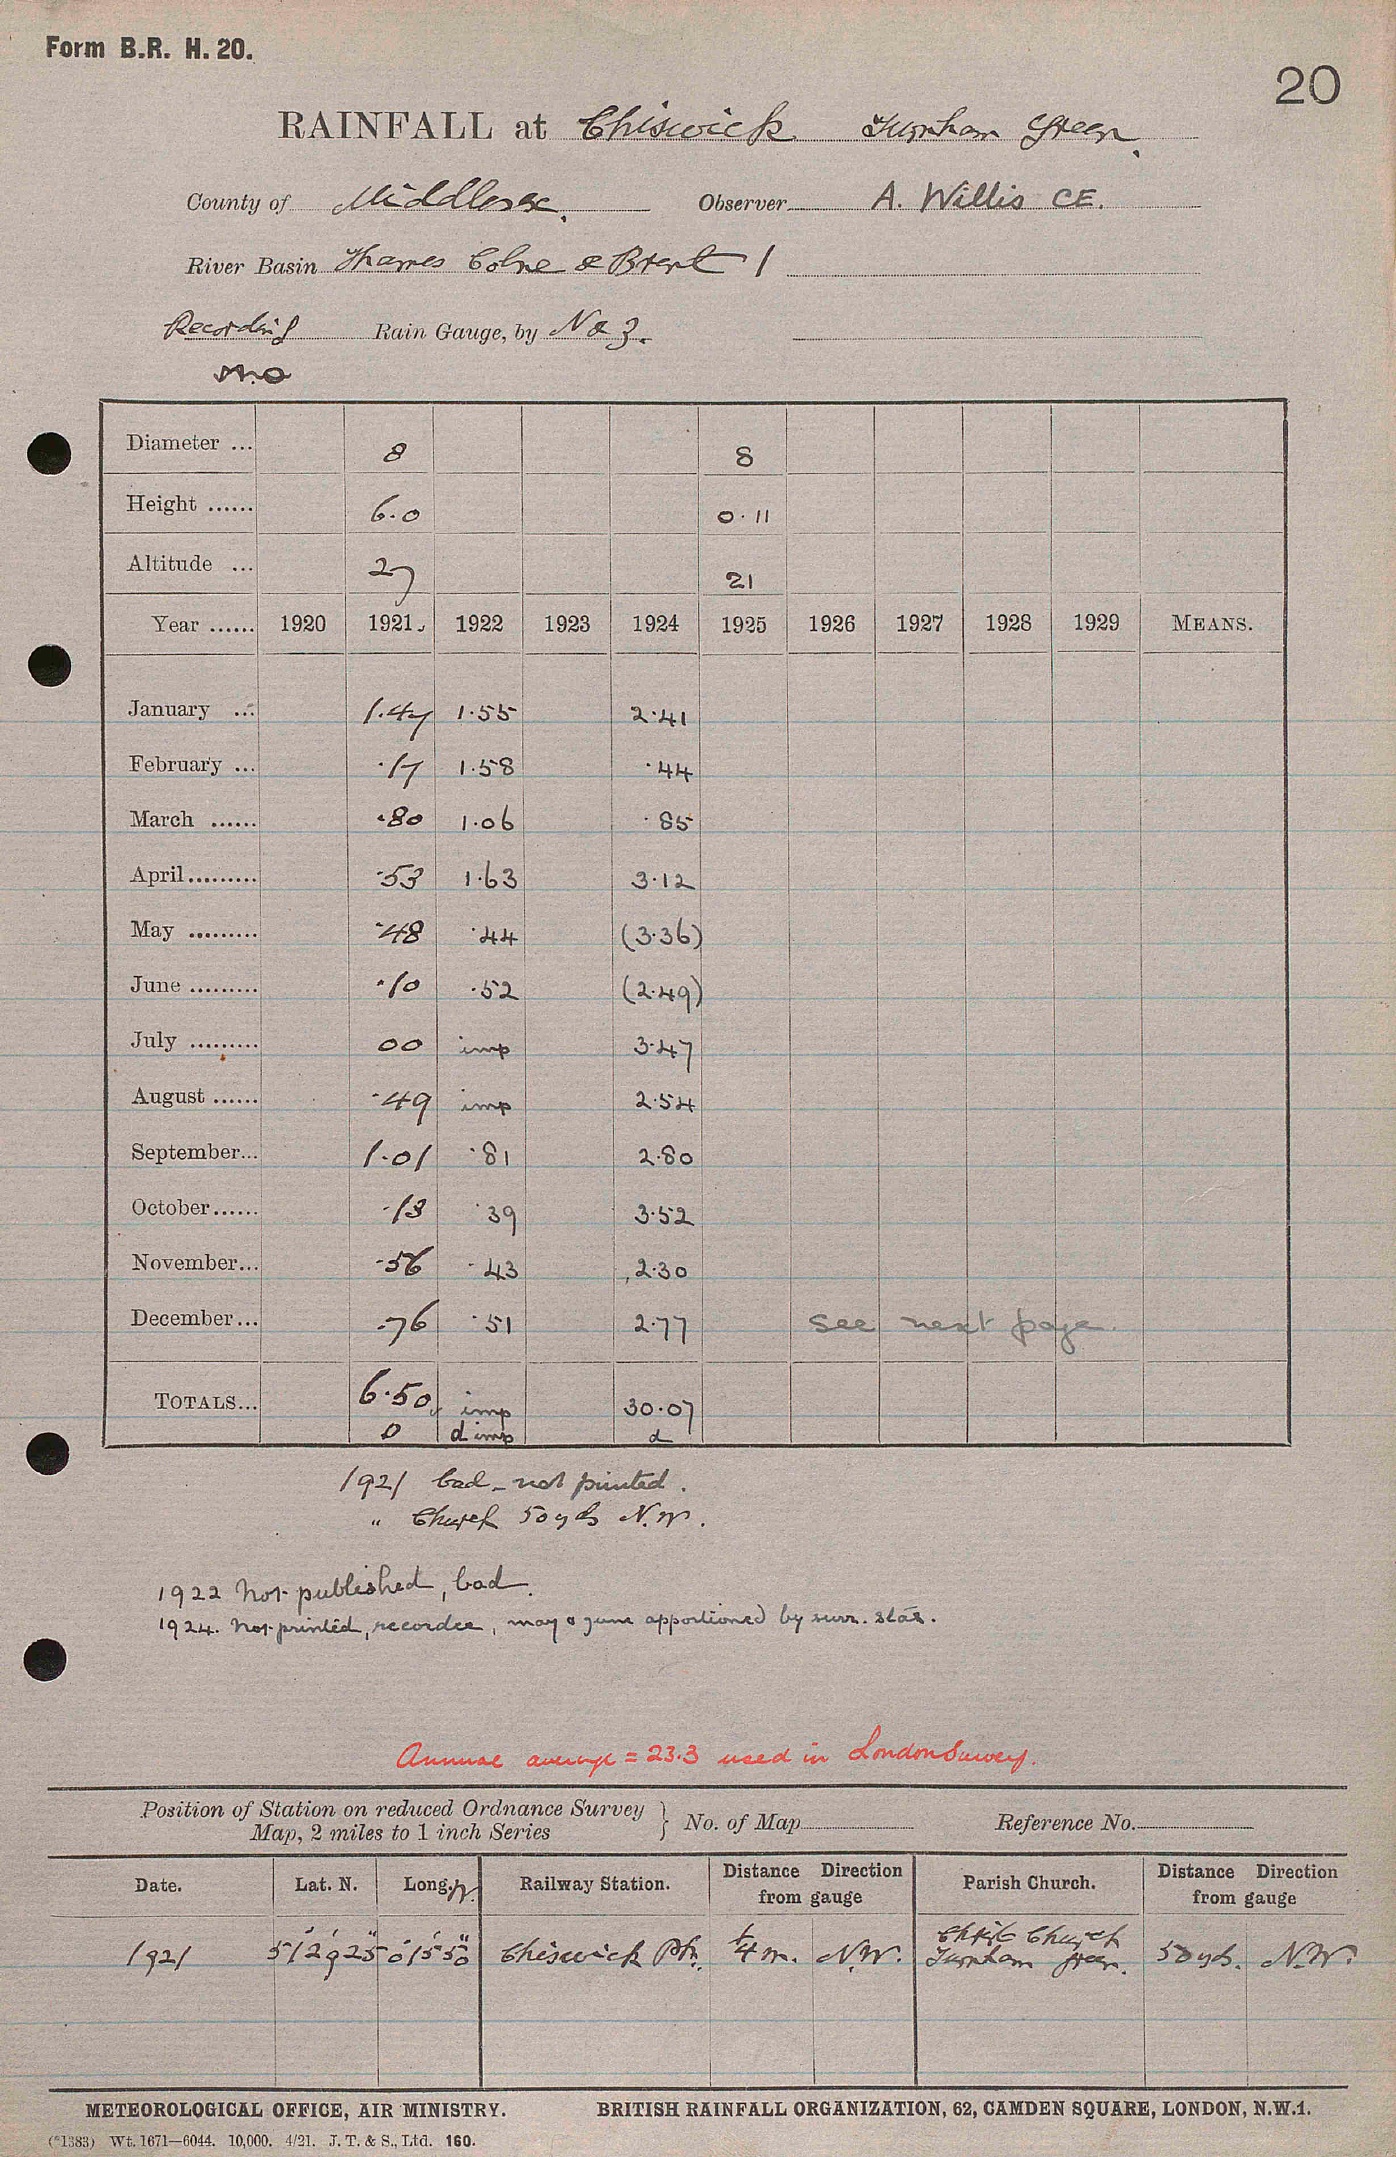 Form B.R. H. 20.
20
RAINFALL at Chiswick Turnham Green.
County of Middlesex. Observer A. Willis CE.
River Basin Thames Colne & Brent 1
Recording Rain Gauge, by N & Z.
M.O
Diameter ... 8 8
Height ...... 6.0 0.11
Altitude ... 27 21
Year ...... 1920 1921 1922 1923 1924 1925 1926 1927 1928 1929 MEANS.
January ... 1.47 1.55 2.41
February ... .17 1.58 .44
March ...... .80 1.06 .85
April......... .53 1.63 3.12
May ......... .48 .44 (3.36)
June ......... .10 .52 (2.49)
July ......... 00 imp 3.47
August ...... .49 imp 2.54
September... 1.01 .81 2.80
October...... .13 .39 3.52
November... .56 .43 2.30
December... .76 .51 2.77 see next page.
TOTALS... 6.50 imp 30.07
0 d imp d
1921 bad - not printed.
" Church 50 yds N.W.
1922 Not published, bad.
1924. Not printed, recorder, may & june apportioned by surr. stas.
Annual average = 23.3 used in London Survey.
Position of Station on reduced Ordnance Survey Map, 2 miles to 1 inch Series } No. of Map Reference No.
Date. Lat. N. Long. W. Railway Station. Distance Direction from gauge Parish Church. Distance Direction from gauge
1921 51° 29' 25" 0° 15' 50" Chiswick Pk. ¼ m. N.W. Christ Church Turnham Green. 50 yds. N.W.
METEOROLOGICAL OFFICE, AIR MINISTRY. BRITISH RAINFALL ORGANIZATION, 62, CAMDEN SQUARE, LONDON, N.W.1.
(*1383) Wt. 1671—6044. 10,000. 4/21. J. T. & S., Ltd. 160.